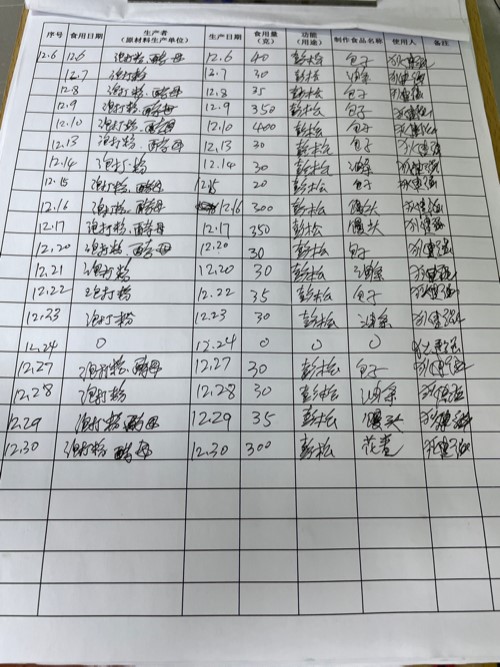 序号 食用日期 生产者（原材料生产单位） 生产日期 食用量（克） 功能（用途） 制作食品名称 使用人 备注
12.6 12.6 泡打粉、酵母 12.6 40 膨松 包子
12.7 泡打粉 12.7 30 膨松 油条
12.8 泡打粉、酵母 12.8 35 膨松 包子
12.9 泡打粉、酵母 12.9 350 膨松 包子
12.10 泡打粉、酵母 12.10 400 膨松 包子
12.13 泡打粉、酵母 12.13 30 膨松 包子
12.14 泡打粉 12.14 30 膨松 油条
12.15 泡打粉、酵母 12.15 20 膨松 包子
12.16 泡打粉、酵母 12.16 300 膨松 馒头
12.17 泡打粉、酵母 12.17 350 膨松 馒头
12.20 泡打粉、酵母 12.20 30 膨松 包子
12.21 泡打粉 12.20 30 膨松 油条
12.22 泡打粉 12.22 35 膨松 包子
12.23 泡打粉 12.23 30 膨松 油条
12.24 0 12.24 0 0 0
12.27 泡打粉、酵母 12.27 30 膨松 包子
12.28 泡打粉 12.28 30 膨松 油条
12.29 泡打粉、酵母 12.29 35 膨松 馒头
12.30 泡打粉 酵母 12.30 300 膨松 花卷